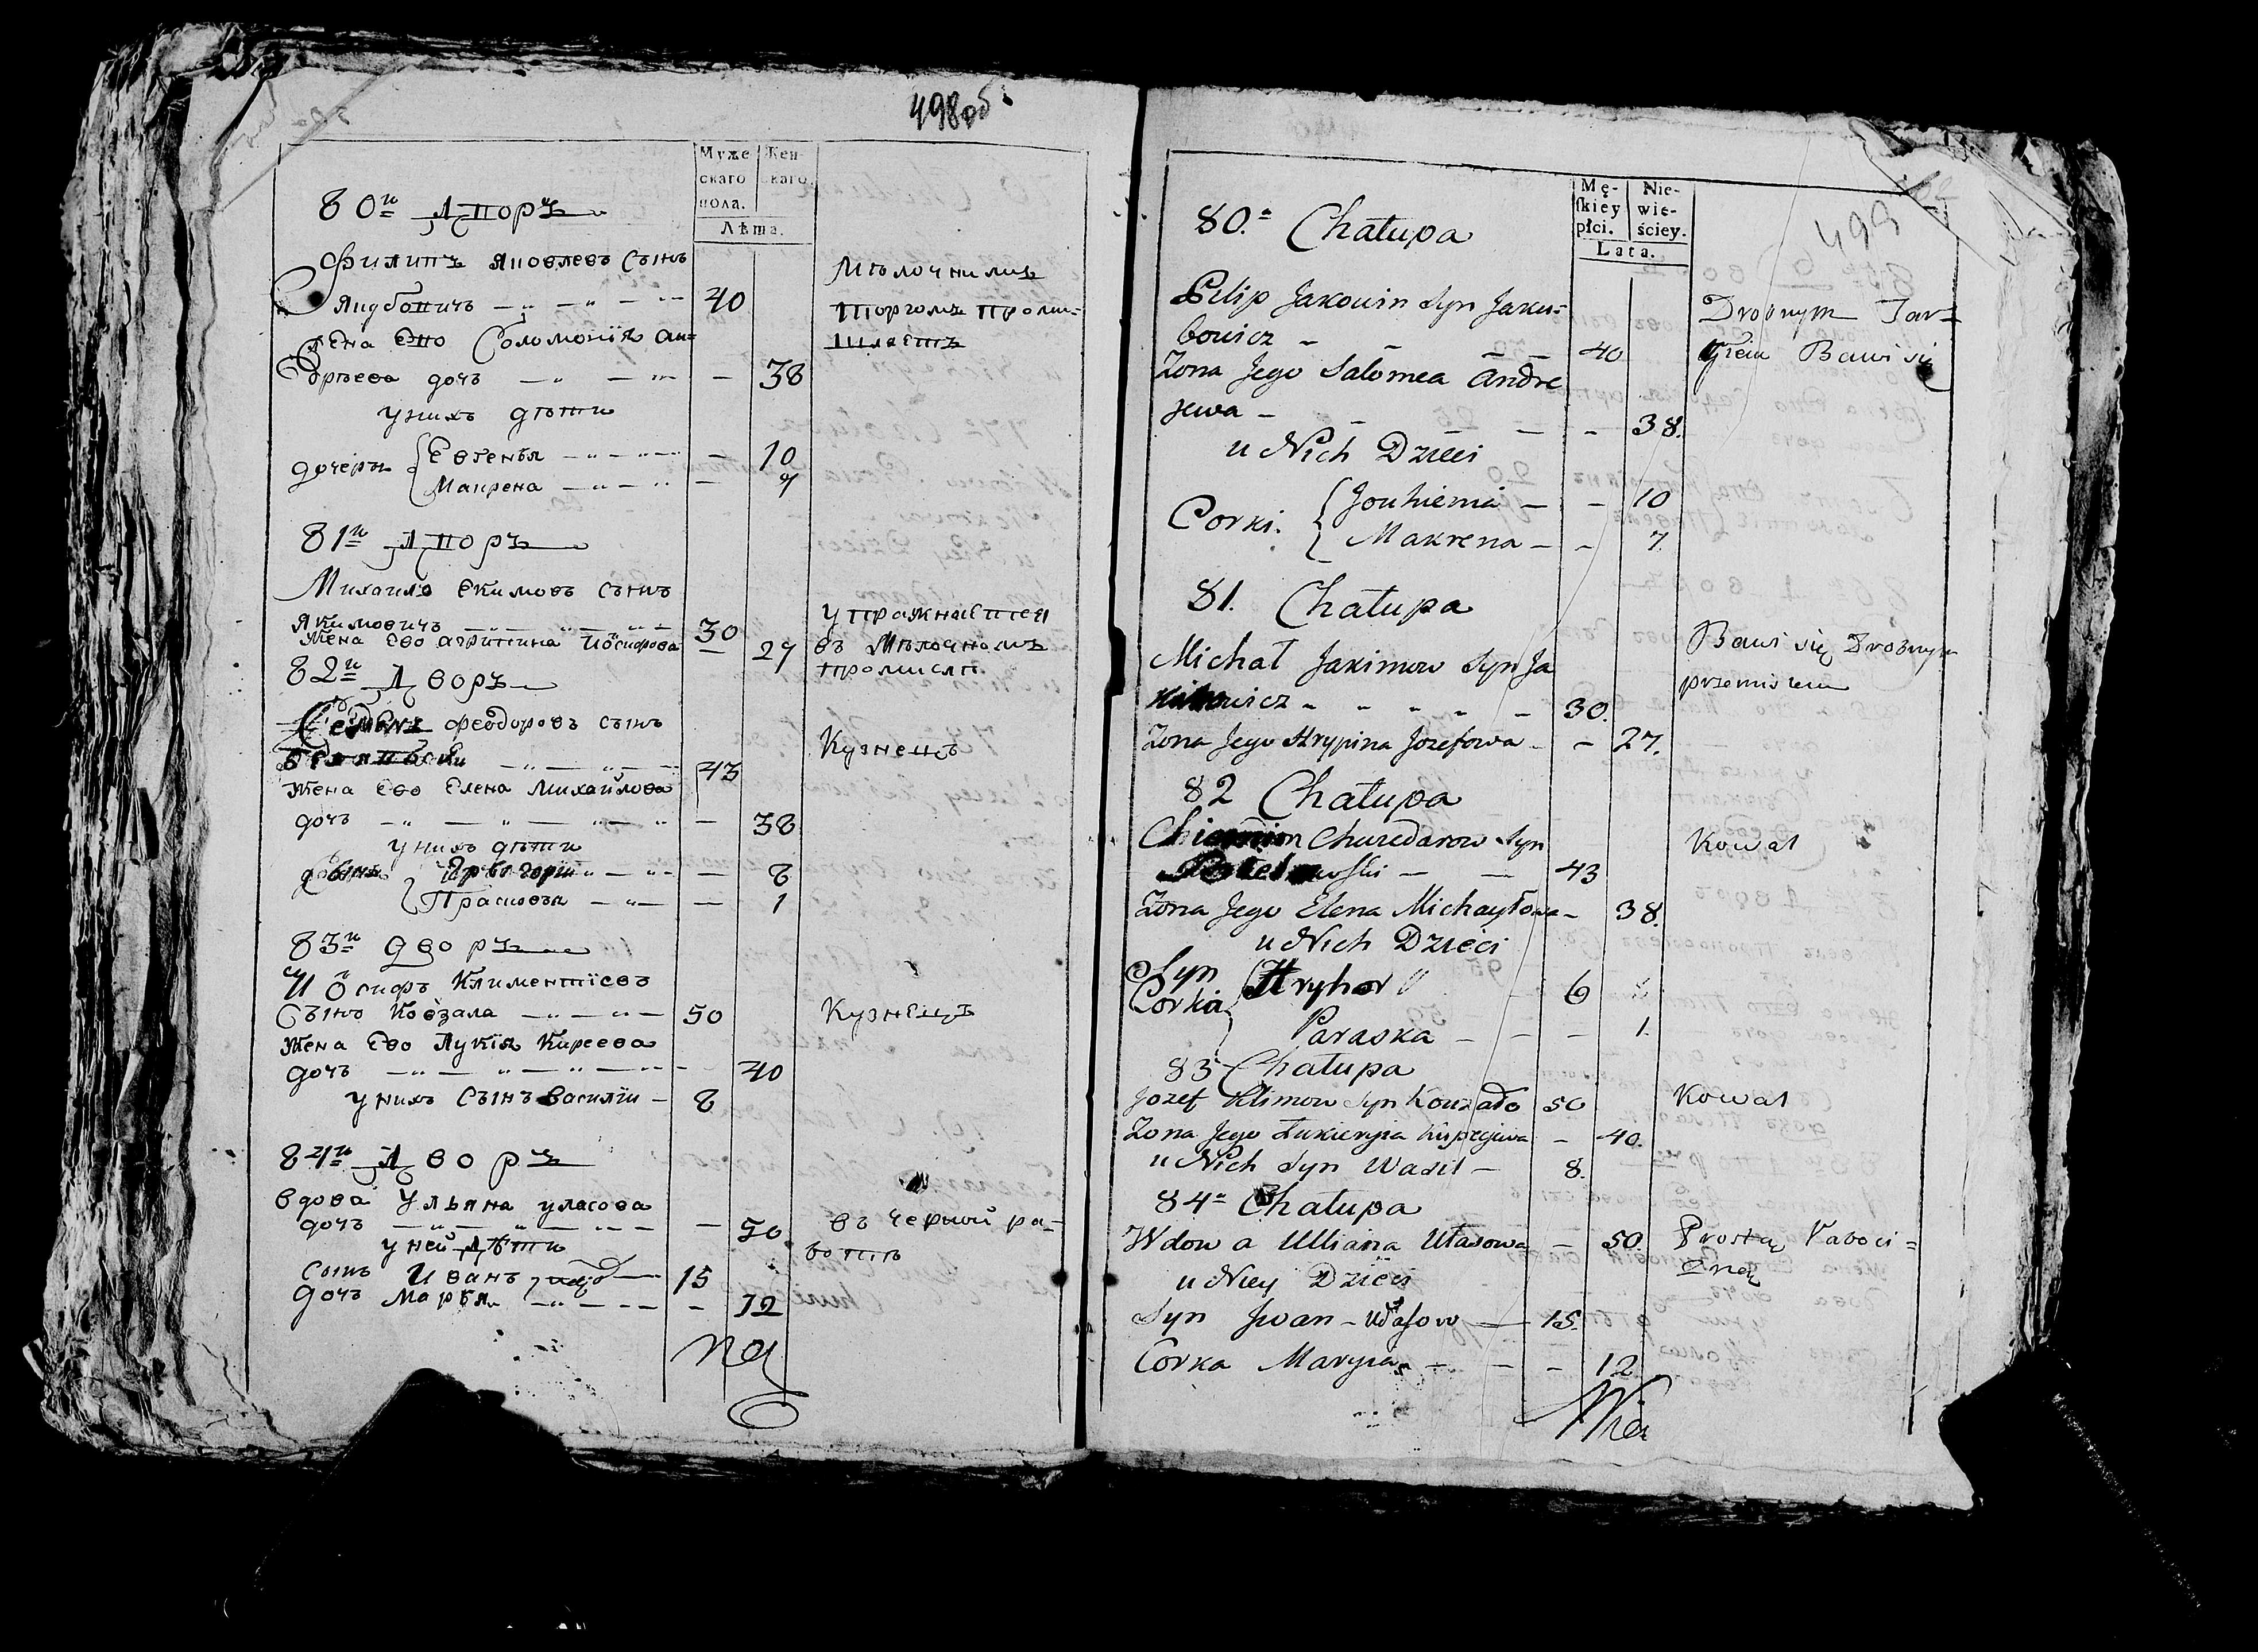 498об
Муже
скаго
пола.
Жен-
скаго.
Лѣта.
80й Дворъ
Филипъ Яковлевъ Сынъ
Якубовичъ 40
Мѣлочнимъ
торгомъ промы-
шляетъ
Жена Его Соломонія Ан-
дрѣева дочь 38
у нихъ дѣти
дочери Евгенья 10
Макрена 7
81й Дворъ
Михаило Екимовъ Сынъ
Якимовичъ 30
упражнается
въ Мѣлочномъ
промислѣ
Жена Его Агрипина Иосифова 27
82й Дворъ
Феодоровъ сынъ
43
Кузнецъ
Жена Его Елена Михайлова
дочь 38
у нихъ дѣти
8
Прасковя 1
83й дворъ
Иосифъ Климентіевъ
Сынъ Ковзала 50
Кузнецъ
Жена Его Лукія Киреева
дочь 40
у нихъ Сынъ Василіи 8
84й Дворъ
вдова Ульяна уласова
дочь 50
въ черной ра-
ботѣ
у ней Дѣти
Сынъ Иванъ 15
дочь Марья 12
499
Mę-
skiey
płci.
Nie-
wie-
ściey.
Lata.
80. Chałupa
Pilip Jakowin Syn Jaku-
bowicz 40
Drobnym Tar-
giem Bawi się
Zona Jego Salomea Andre
jewa 38.
u Nich Dzieci
Corki. Jouhienia 10
Makrena 7.
81. Chałupa
Michał Jakimow Syn Ja
kimowicz 30.
Bawi się Drobnym
przemisłem
Zona Jego Hrypina Jozefowa 27.
82 Chałupa
Chwedarow Syn
43
Kowal
Zona Jego Elena Michayłowa 38.
u Nich Dzieci
Syn Hryhor 6
Corka
Paraska 1.
83 Chałupa
Jozef Klimow Syn Kouzało 50
Kowal
Zona Jego Łukieryia Kiprejewa 40.
u Nich Syn Wasil 8.
84 Chałupa
Wdowa Ulliana Ułasowa 50.
Prostą Raboci-
zną
u Niey Dzieci
Syn Jwan 15.
Corka Maryia 12